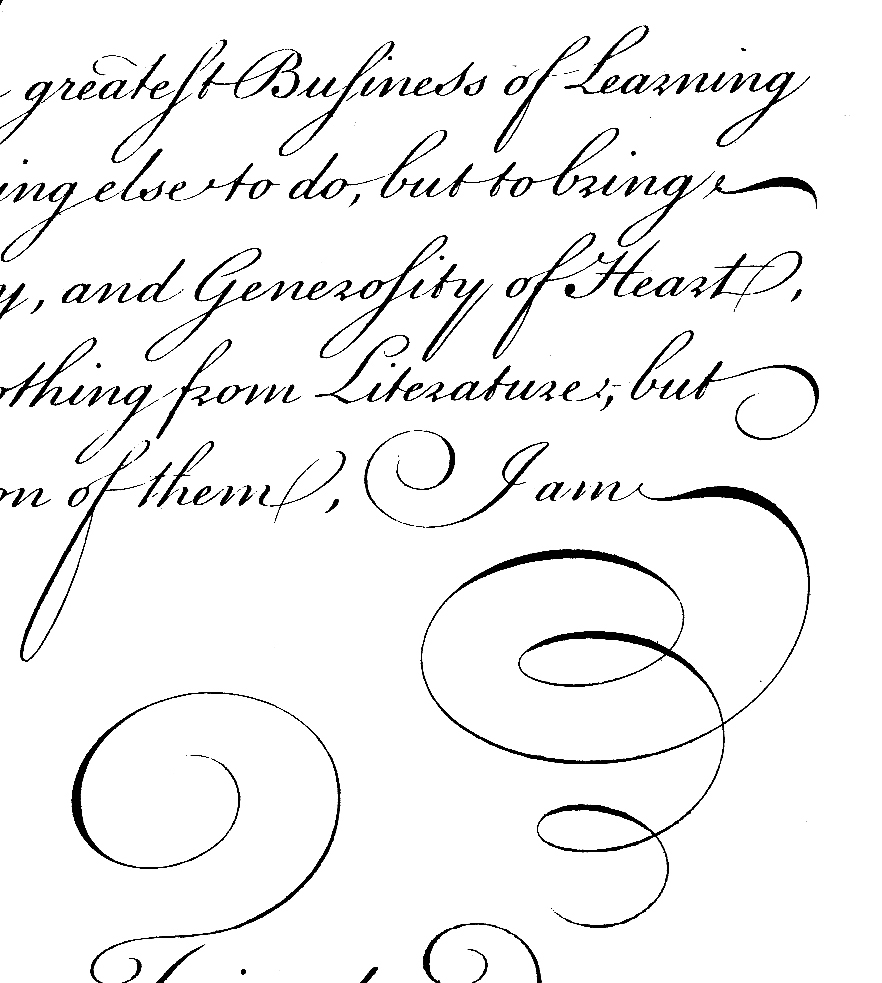 greateſt Buſineſs of Learning
ing else to do, but to bring
y, and Generoſity of Heart,
othing from Literature; but
on of them, I am